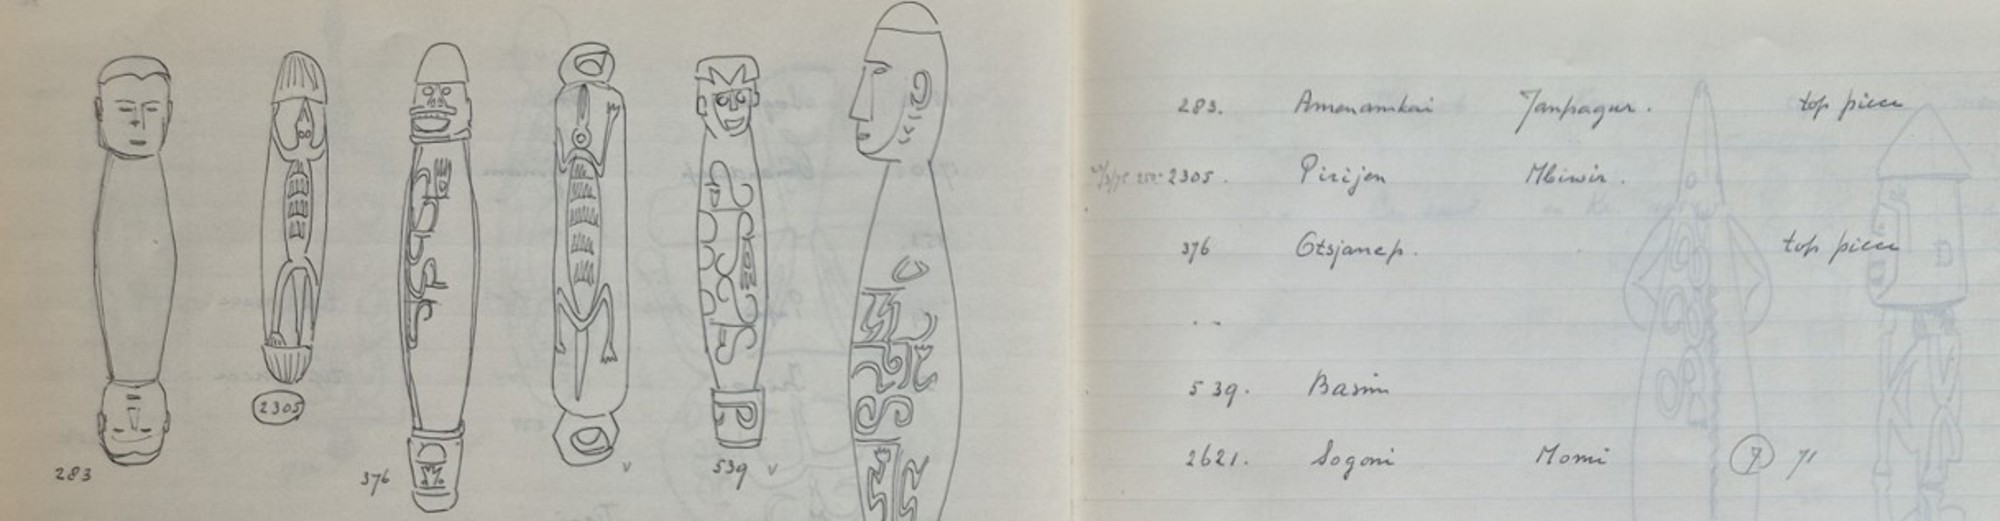 2305
283
376
v
539 v
283. Amanamkai Janpagur. top piece
2305. Pirijen Mbiwir.
376 Otsjanep. top piece
..
539. Basim
2621. Sogoni Momi 7 71